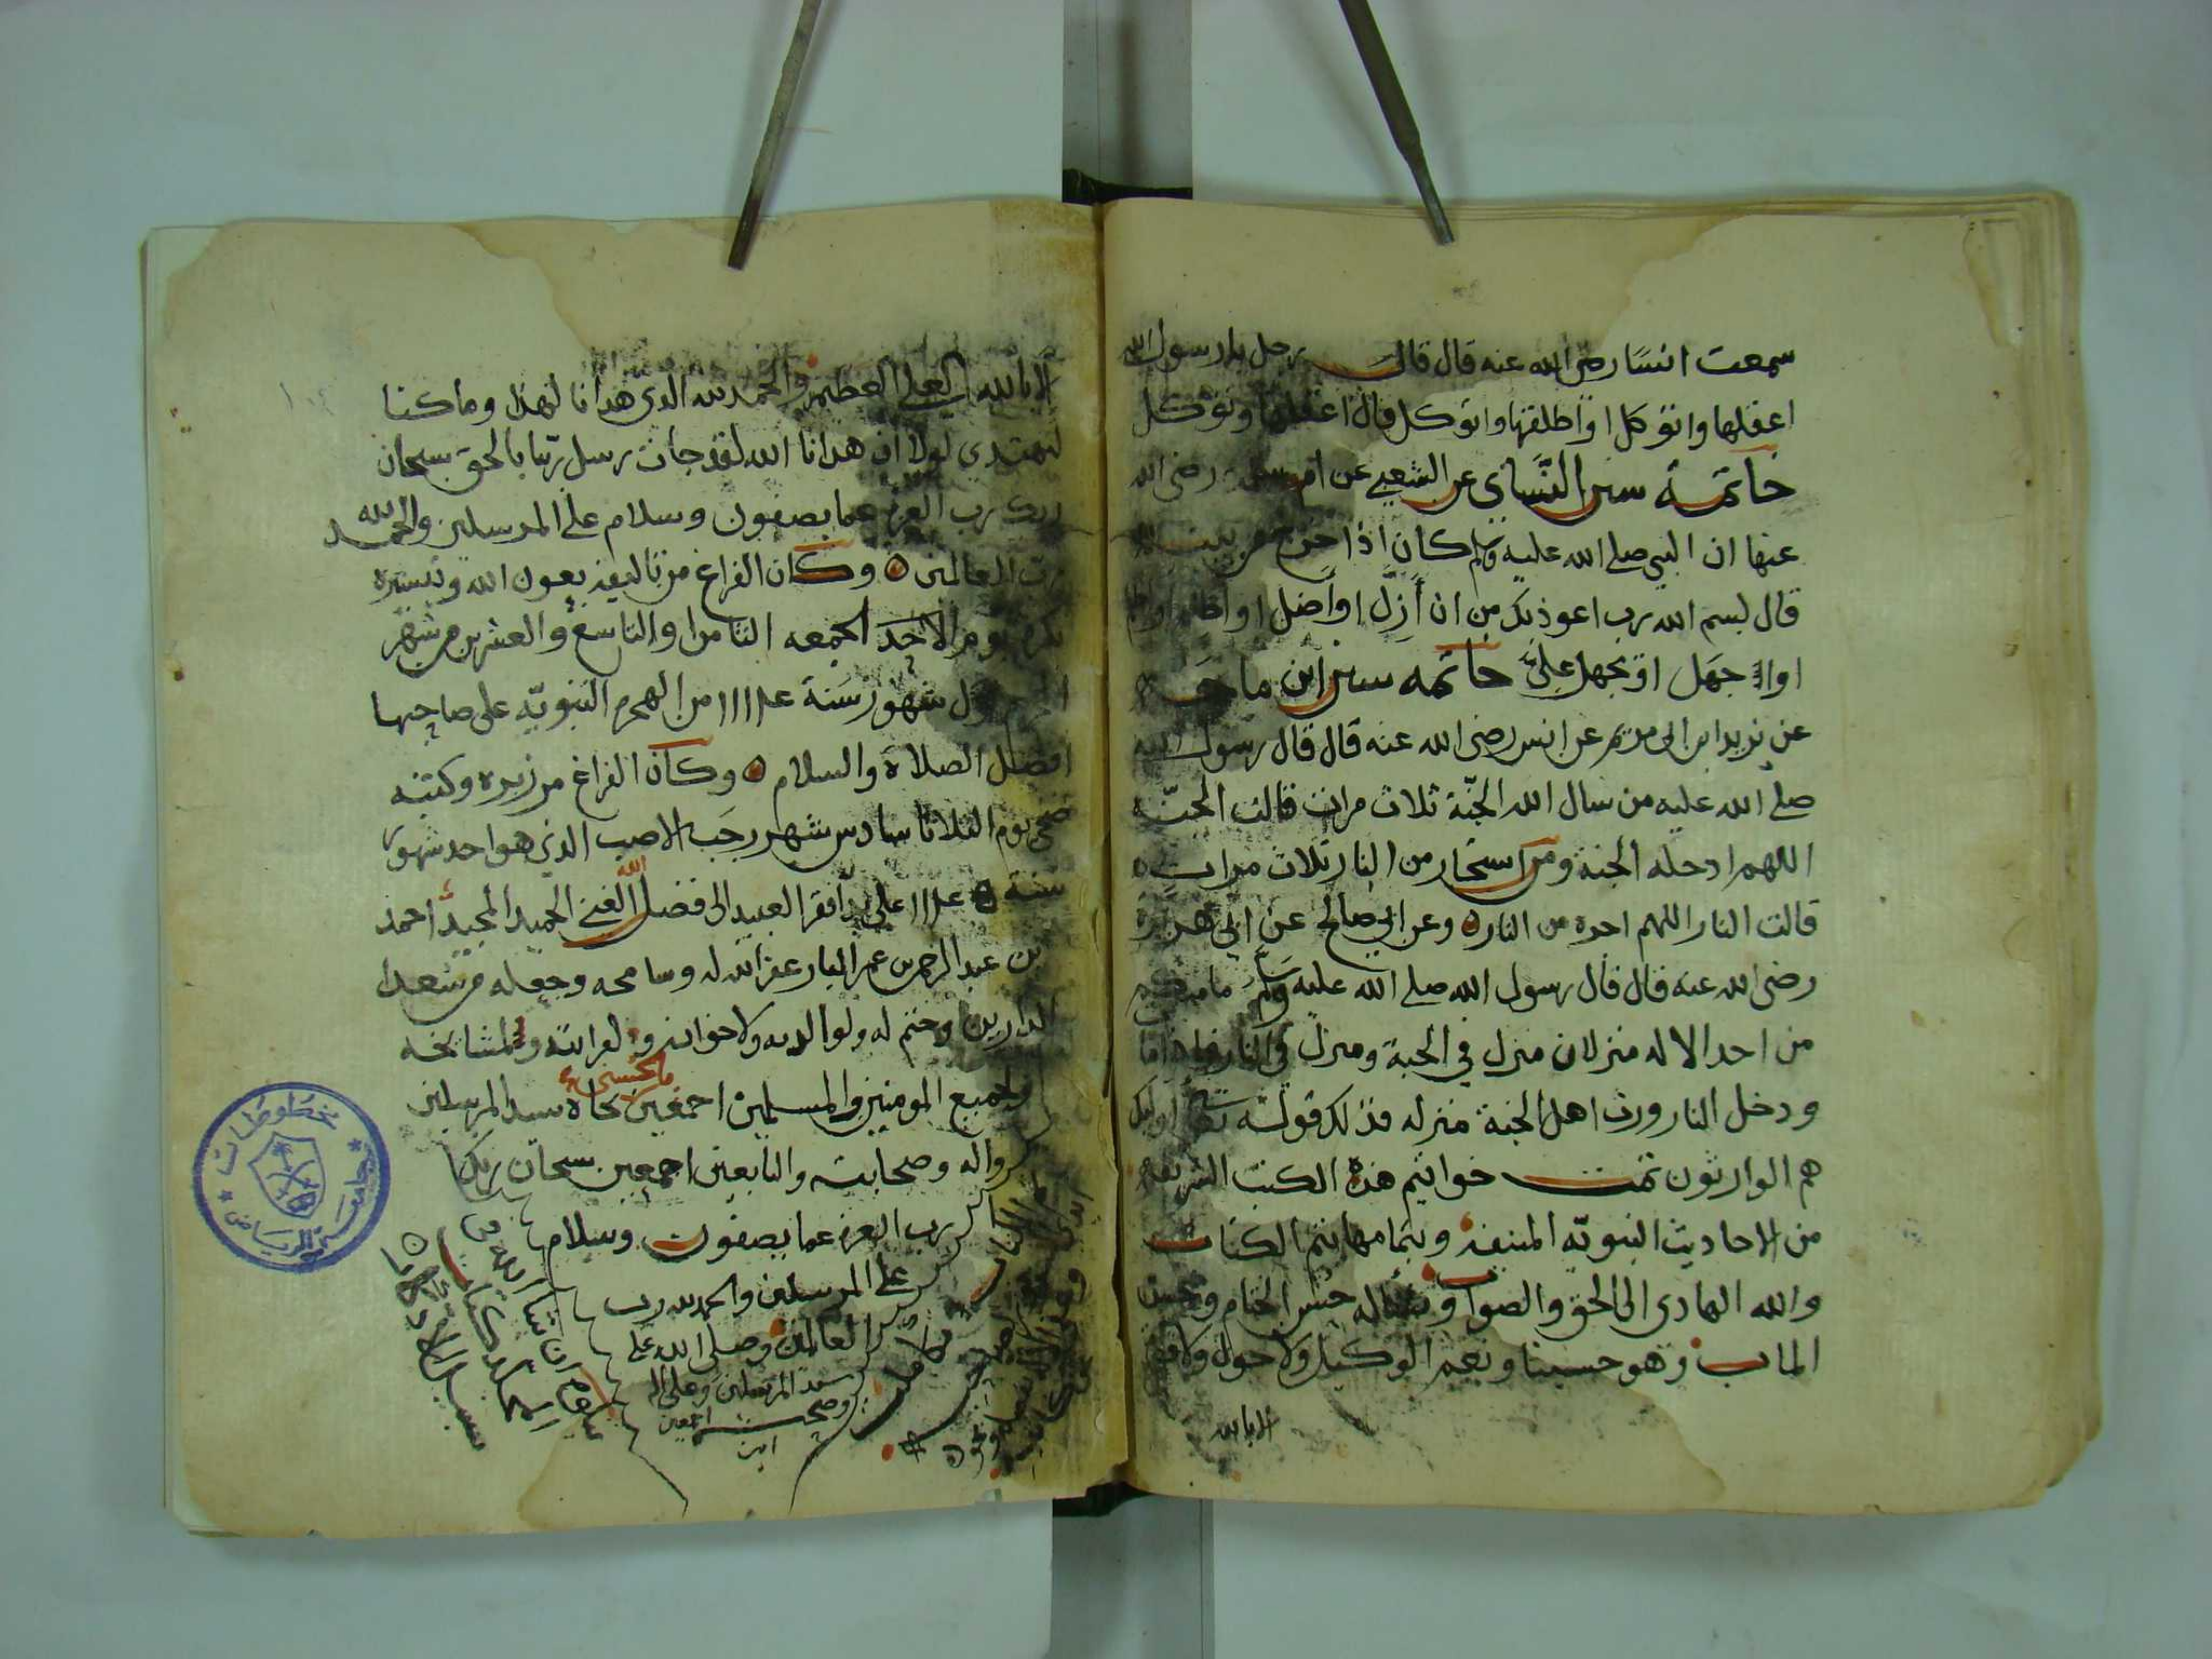 سمعت انسًا رضي الله عنه قال قال رجل يا رسول الله
اعقلها واتوكل او اطلقها واتوكل قال اعقلها وتوكل
خاتمة سنن النسَاى عن الشعبي عن ام سلمة رضى الله
عنها ان النبي صلى الله عليه وسلم كان اذا خرج من بيته
قال بسم الله رب اعوذ بك من ان أَزِلّ او أضل او اظلم او اظلم
او اجهَل او يجهل عليّ خاتمه سنن ابن ماجَه
عن يزيد ابن ابى مريم عن انس رضى الله عنه قال قال رسول الله
صلى الله عليه من سال الله الجنّة ثلاث مرات قالت الجنّة
اللهم ادخله الجنة ومن استجار من النار ثلاث مرات
قالت النار اللهم اجره من النار ٥ وعن ابي صالح عن ابي هريرة
رضى الله عنه قال قال رسول الله صلى الله عليه وسَلّم ما منكم
من احد الا له منزلان منزل في الجنة ومنزل في النار فاذا مات
ودخل النار ورث اهل الجنة منزله فذلك قوله تعالى أوليك
هم الوارثون تمت خواتيم هذه الكتب الشريفة
من الاحاديث النبويّه المنيفة وبتمامها يتم الكتاب
والله الهادى الى الحق والصواب ونسأله حسن الختام وحسن
الماب وهو حسبنا ونعم الوكيل ولا حول ولا قوة
الا بالله
الا بالله العلي العظيم والحمد لله الذى هدانا لهذا وما كنا
لنهتدى لولا ان هدانا الله لقد جات رسل ربّنا بالحق سبحان
ربك رب العزة عما يصفون وسلام على المرسلين والحمد لله
رب العالمين ٥ وكان الفراغ من تاليفه بعون الله وتيسيره
يوم الاحَد الجمعه الثامن او التاسع والعشرين من شهر
شهور سَنة من الهجره النبويّه على صاحبها
افضل الصلاة والسلام ٥ وكان الفراغ من زبره وكتبته
ضحى يوم الثلاثا سادس شهر رجَب الاصب الذي هو احد شهور
سنة على يد افقر العبيد الى فضل الله الغني الحميد المجيد احمد
بن عبد الرحمن بن عمر البار عفا الله له وسامحه وجعله من سُعدا
الدارين وختم له ولوالديه ولاخوانه ولقرابته ولمشايخه
ولجميع المومنين والمسلمين اجمعين بالحسنى بجاه سيد المرسلين
واله وصحابته والتابعين اجمعين سبحان ربك
رب العزة عما يصفون وسلام
على المرسلين والحمد لله رب
العالمين وصلى الله على
سيد المرسلين وعلى اله
وصحبه اجمعين
امين
مخطوطات
جامعة الرياض